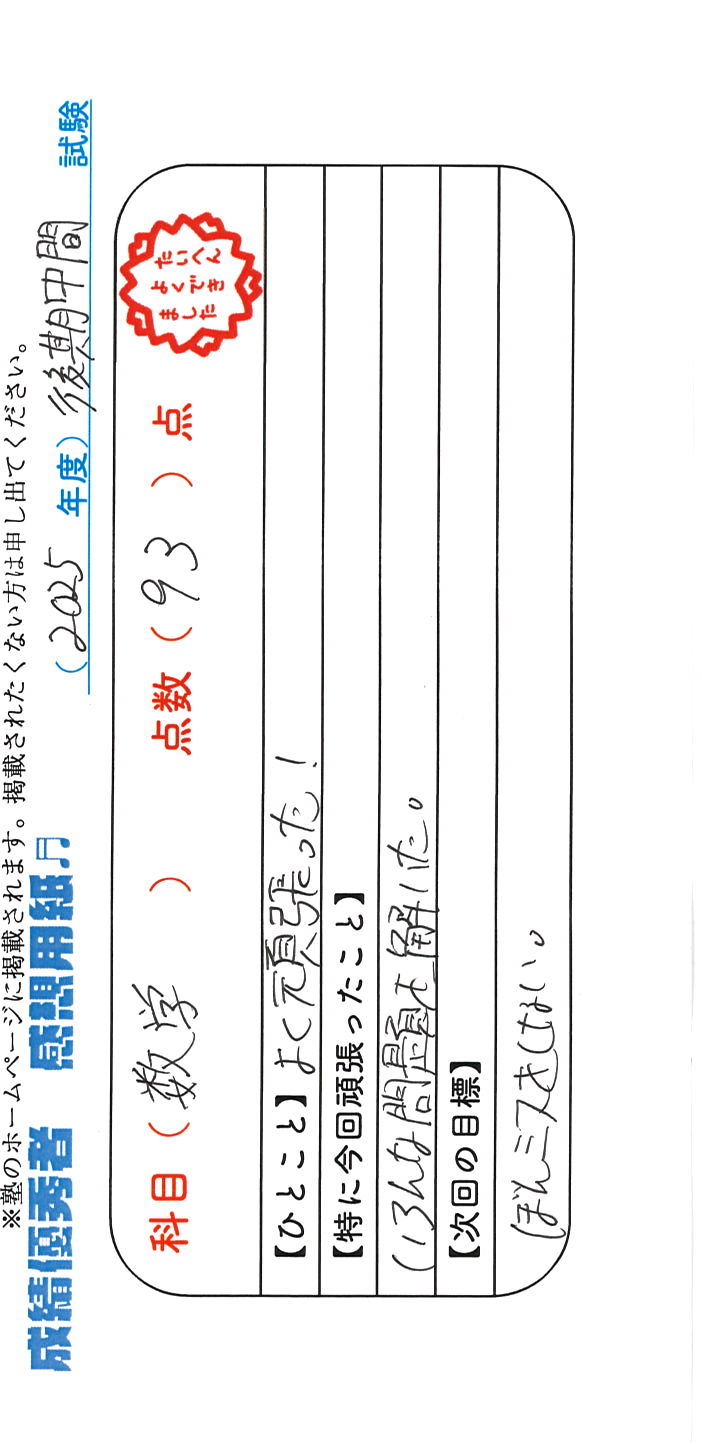 ※塾のホームページに掲載されます。掲載されたくない方は申し出てください。
成績優秀者 感想用紙♬
(2025 年度) 後期中間 試験
科目 ( 数学 ) 点数 ( 93 ) 点
たいへん
よくでき
ました
【ひとこと】よく頑張った!
【特に今回頑張ったこと】
いろんな問題を解いた。
【次回の目標】
ぼんミスをしない。